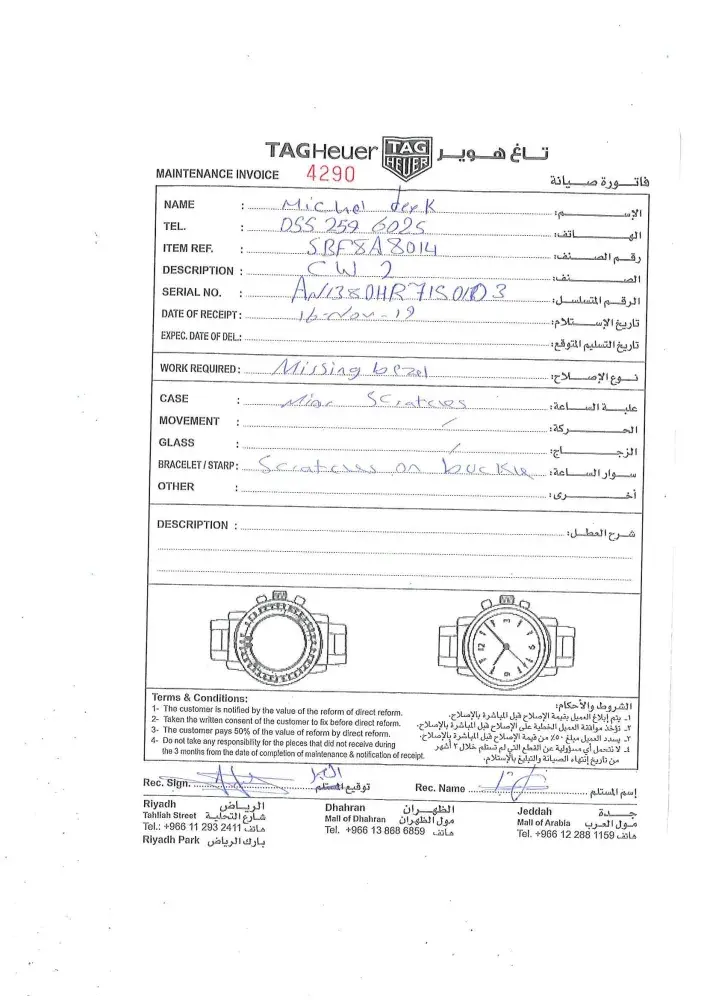 TAGHeuer TAG HEUER تاغ هوير
MAINTENANCE INVOICE 4290 فاتورة صيانة
NAME : Michel derk الإسم:
TEL. : 055 259 6025 الهاتف:
ITEM REF. : SBF8A8014 رقم الصنف:
DESCRIPTION : CW2 الصنف:
SERIAL NO. : الرقم المتسلسل:
DATE OF RECEIPT : 16-Nov-19 تاريخ الإستلام:
EXPEC. DATE OF DEL.: تاريخ التسليم المتوقع:
WORK REQUIRED : Missing bezel نوع الإصلاح:
CASE : Scratches علبة الساعة:
MOVEMENT : / الحركة:
GLASS : / الزجاج:
BRACELET / STARP : Scratches on buckle سوار الساعة:
OTHER : أخرى:
DESCRIPTION : شرح العطل:
12 3 6 9
Terms & Conditions: الشروط والأحكام:
1- The customer is notified by the value of the reform of direct reform. ١- يتم إبلاغ العميل بقيمة الإصلاح قبل المباشرة بالإصلاح.
2- Taken the written consent of the customer to fix before direct reform. ٢- تؤخذ موافقة العميل الخطية على الإصلاح قبل المباشرة بالإصلاح.
3- The customer pays 50% of the value of reform by direct reform. ٣- يسدد العميل مبلغ ٥٠٪ من قيمة الإصلاح قبل المباشرة بالإصلاح.
4- Do not take any responsibility for the pieces that did not receive during ٤- لا نتحمل أي مسؤولية عن القطع التي لم تستلم خلال ٣ أشهر
the 3 months from the date of completion of maintenance & notification of receipt. من تاريخ إنتهاء الصيانة والتبليغ بالإستلام.
Rec. Sign. توقيع المستلم Rec. Name إسم المستلم
Riyadh الرياض Dhahran الظهران Jeddah جدة
Tahliah Street شارع التحلية Mall of Dhahran مول الظهران Mall of Arabia مول العرب
Tel.: +966 11 293 2411 هاتف Tel. +966 13 868 6859 هاتف Tel. +966 12 288 1159 هاتف
Riyadh Park بارك الرياض